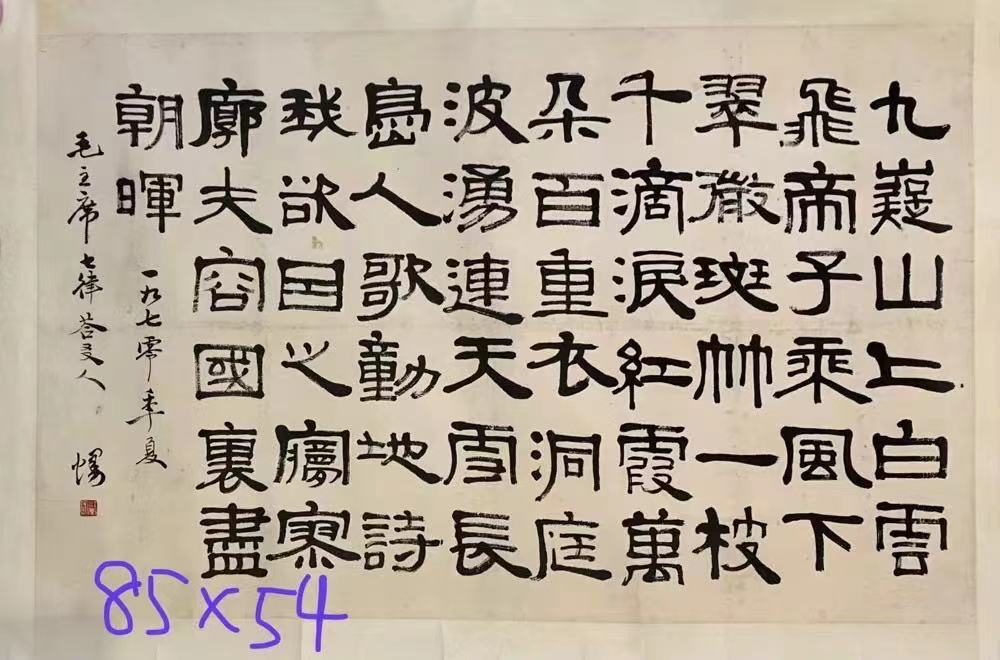 九嶷山上白雲
飛帝子乘風下
翠微斑竹一枝
千滴淚紅霞萬
朵百重衣洞庭
波湧連天雪長
島人歌動地詩
我欲因之夢寥
廓夫容國裏盡
朝暉
一九七零年夏
毛主席七律答友人
85×54